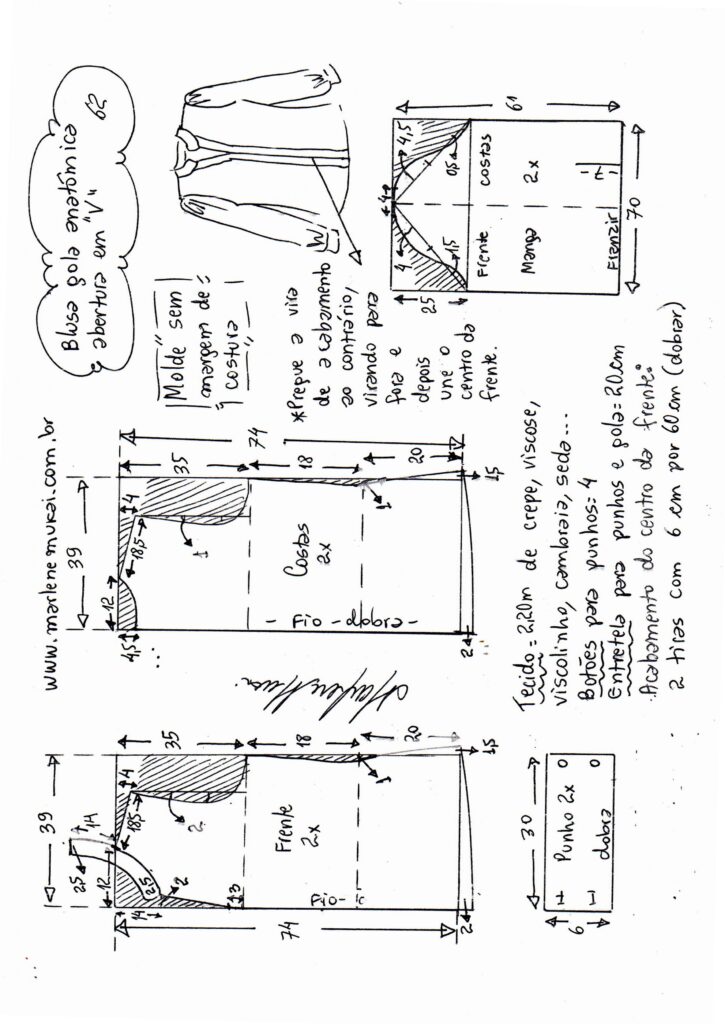 www.marlenemukai.com.br
Blusa gola anatômica
abertura em "V"
62
39
4
14
25
12
18,5
4
2
25
2
14
3
35
18
20
1
1,5
2
74
Frente
2x
Fio
39
12
4,5
18,5
4
1
35
18
20
1
1,5
2
74
Costas
2x
- Fio - dobra -
Molde sem
margem de
costura
*Prepue a vira
de acabamento
ao contrário,
virando para
fora e
depois
une o
centro da
frente.
4
4,5
4
0,5
1,5
25
61
70
Frente
costas
Manga
2x
Franzir
7
30
6
Punho 2x
dobra
Tecido = 2,20m de crepe, viscose,
viscolinho, cambraia, seda...
Botões para punhos: 4
Entretela para punhos e gola = 20cm
Acabamento do centro da frente:
2 tiras com 6 cm por 60 cm (dobrar)